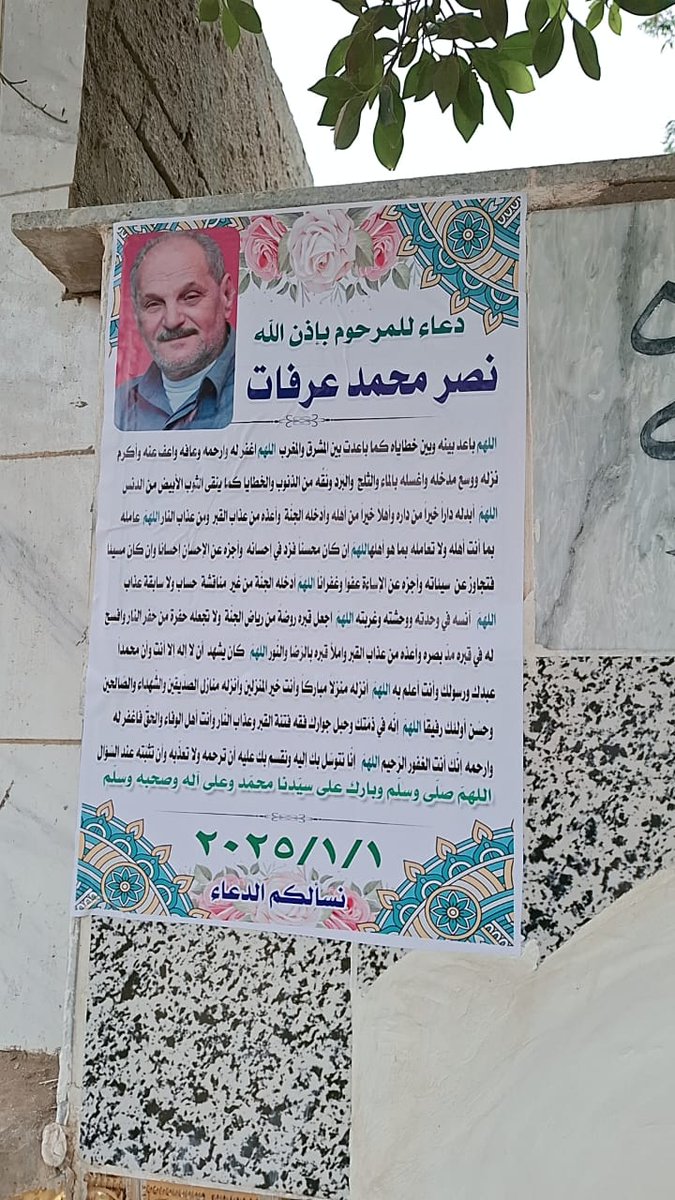 دعاء للمرحوم بإذن الله
نصر محمد عرفات
اللهم باعد بينه وبين خطاياه كما باعدت بين المشرق والمغرب اللهم اغفر له وارحمه وعافه واعف عنه وأكرم
نزله ووسع مدخله واغسله بالماء والثلج والبرد ونقه من الذنوب والخطايا كما ينقى الثوب الأبيض من الدنس
اللهم أبدله دارا خيراً من داره وأهلا خيرا من أهله وأدخله الجنة وأعذه من عذاب القبر ومن عذاب النار اللهم عامله
بما أنت أهله ولا تعامله بما هو أهله اللهم ان كان محسنا فزد في احسانه وأجزه عن الاحسان إحسانا وان كان مسيئا
فتجاوز عن سيئاته وأجزه عن الاساءة عفوا وغفرانا اللهم أدخله الجنة من غير مناقشة حساب ولا سابقة عذاب
اللهم أنسه في وحدته ووحشته وغربته اللهم اجعل قبره روضة من رياض الجنة ولا تجعله حفرة من حفر النار وافسح
له في قبره مد بصره وأعذه من عذاب القبر واملأ قبره بالرضا والنور اللهم كان يشهد أن لا اله الا انت وأن محمداً
عبدك ورسولك وأنت أعلم به اللهم أنزله منزلا مباركا وأنت خير المنزلين وأنزله منازل الصديقين والشهداء والصالحين
وحسن أولئك رفيقا اللهم إنه في ذمتك وحبل جوارك فقه فتنة القبر وعذاب النار وأنت أهل الوفاء والحق فاغفر له
وارحمه انك أنت الغفور الرحيم اللهم إنا نتوسل بك إليه ونقسم بك عليه أن ترحمه ولا تعذبه وأن تثبته عند السؤال
اللهم صلى وسلم وبارك على سيدنا محمد وعلى آله وصحبه وسلم
٢٠٢٥/١/١
نسألكم الدعاء